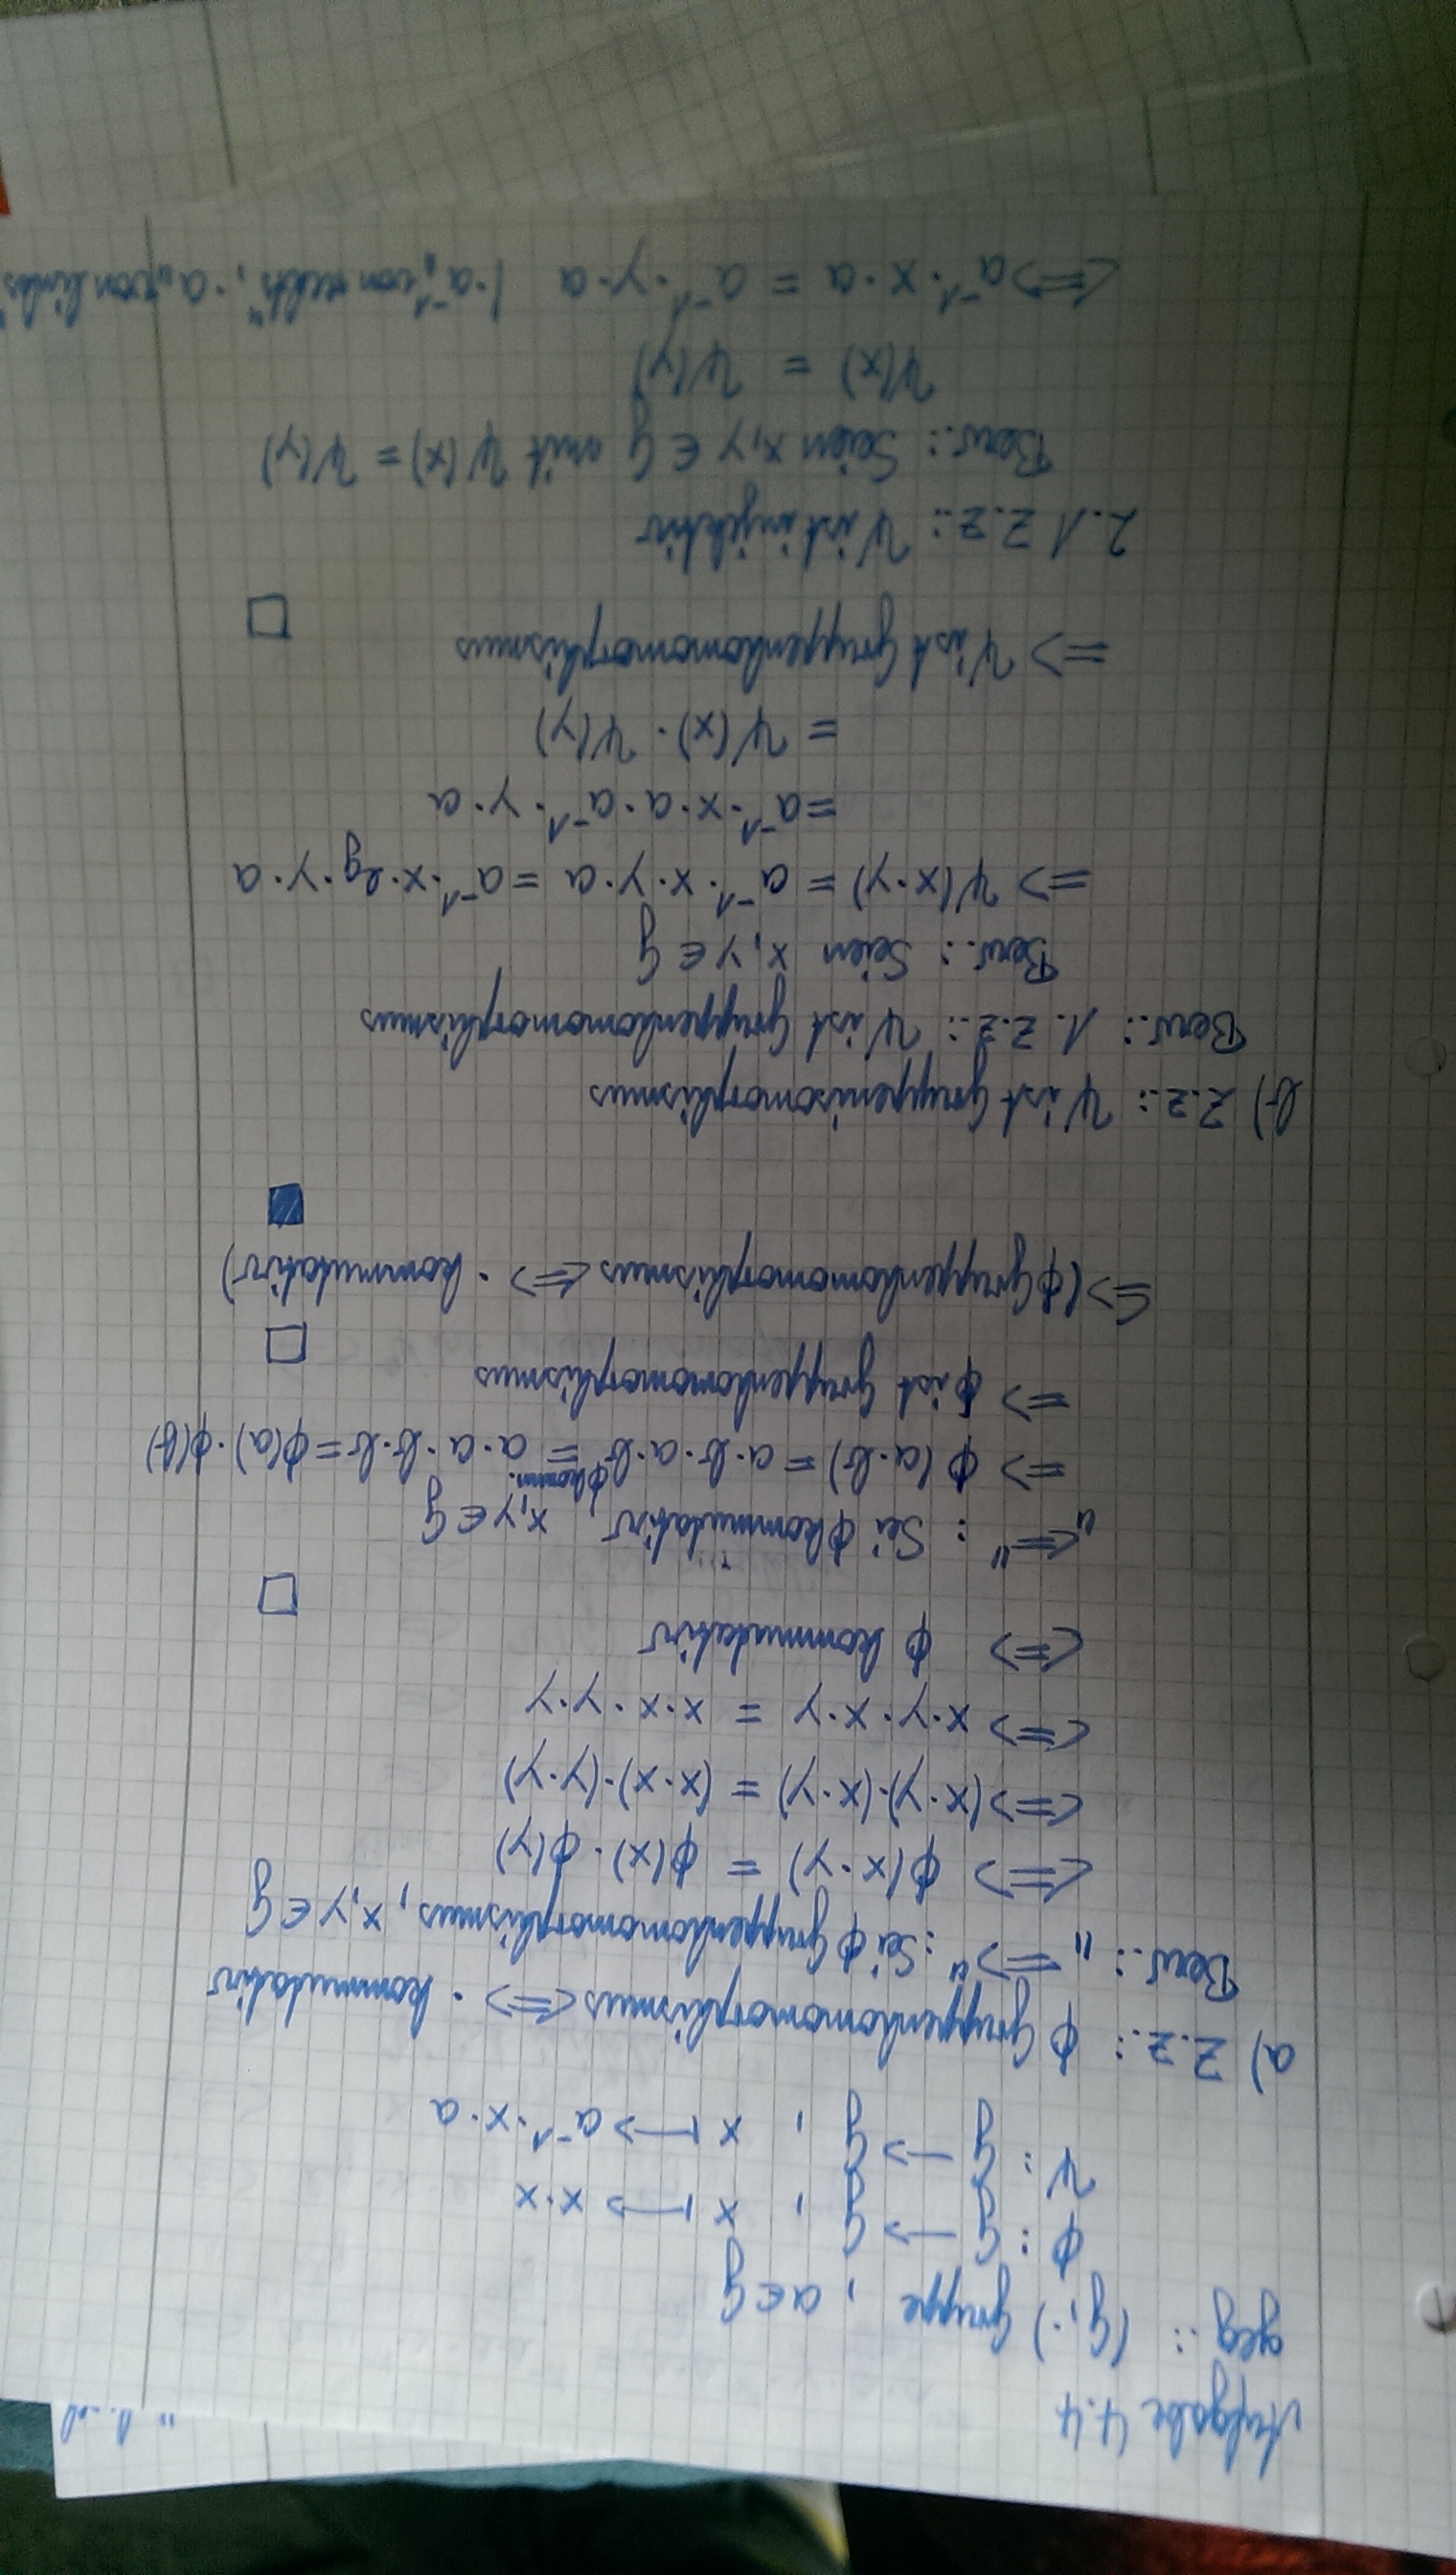 Aufgabe 4.4
geg.: (G,·) Gruppe, a∈G
ϕ: G → G, x ↦ x·x
ψ: G → G, x ↦ a⁻¹·x·a
a) z.z.: ϕ Gruppenhomomorphismus <=> · kommutativ
Bew.: "=>": Sei ϕ Gruppenhomomorphismus, x,y ∈ G
<=> ϕ(x·y) = ϕ(x)·ϕ(y)
<=> (x·y)·(x·y) = (x·x)·(y·y)
<=> x·y·x·y = x·x·y·y
<=> ϕ kommutativ □
"<=": Sei ϕ kommutativ, x,y ∈ G
=> ϕ(a·b) = a·b·a·b = a·a·b·b = ϕ(a)·ϕ(b)
ϕ komm.
=> ϕ ist Gruppenhomomorphismus □
=> (ϕ Gruppenhomomorphismus <=> · kommutativ) ■
b) z.z.: ψ ist Gruppenisomorphismus
Bew.: 1. z.z.: ψ ist Gruppenhomomorphismus
Bew.: Seien x,y ∈ G
=> ψ(x·y) = a⁻¹·x·y·a = a⁻¹·x·eg·y·a
= a⁻¹·x·a·a⁻¹·y·a
= ψ(x)·ψ(y)
=> ψ ist Gruppenhomomorphismus □
2.1 z.z.: ψ ist injektiv
Bew.: Seien x,y ∈ G mit ψ(x) = ψ(y)
ψ(x) = ψ(y)
<=> a⁻¹·x·a = a⁻¹·y·a |·a⁻¹ „von rechts“, ·a „von links“